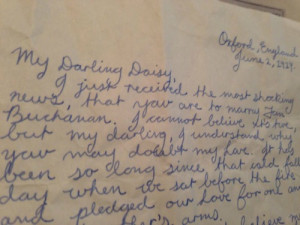 Oxford, England
June 2, 1919.
My Darling Daisy,
I just received the most shocking
news, that you are to marry Tom
Buchanan. I cannot believe it's true,
but my darling, I understand why
you may doubt my love. It has
been so long since that used fall
day when we sat before the fire
and pledged our love for one an
arms.